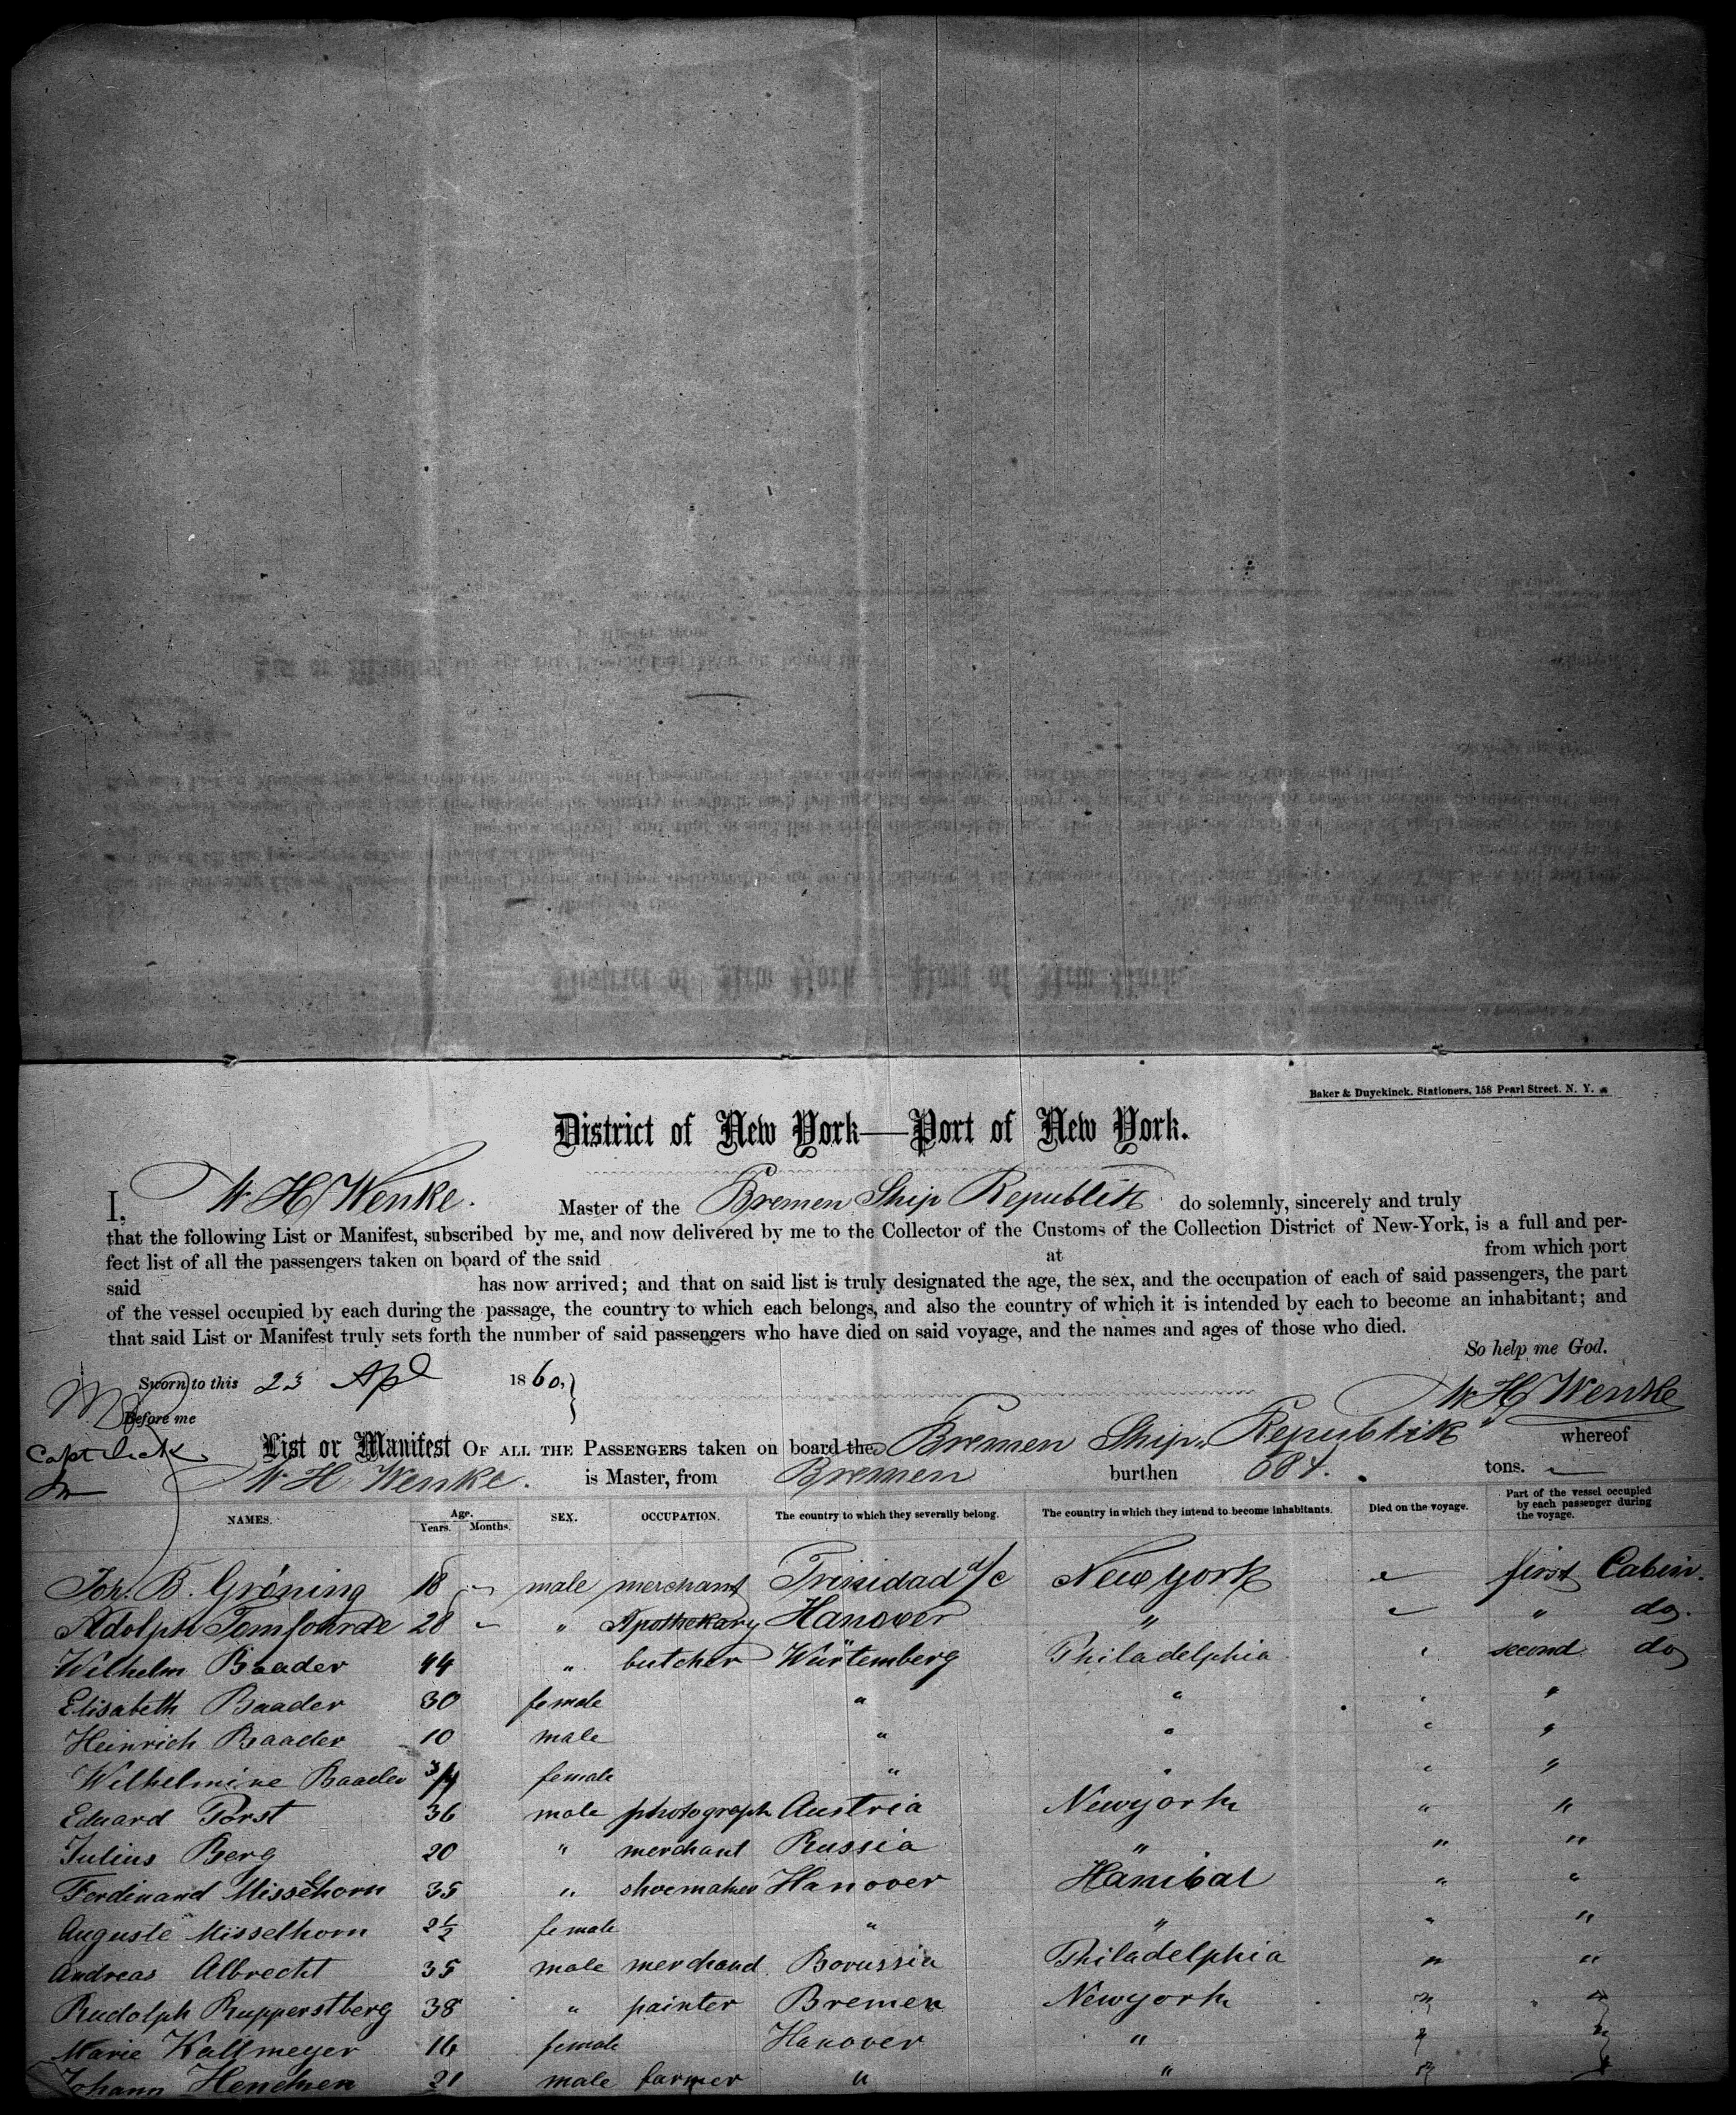 Baker & Duyckinck, Stationers, 158 Pearl Street. N. Y.
District of New York—Port of New York.
I, W H Wenke. Master of the Bremen Ship Republik do solemnly, sincerely and truly
that the following List or Manifest, subscribed by me, and now delivered by me to the Collector of the Customs of the Collection District of New-York, is a full and per-
fect list of all the passengers taken on board of the said at from which port
said has now arrived; and that on said list is truly designated the age, the sex, and the occupation of each of said passengers, the part
of the vessel occupied by each during the passage, the country to which each belongs, and also the country of which it is intended by each to become an inhabitant; and
that said List or Manifest truly sets forth the number of said passengers who have died on said voyage, and the names and ages of those who died.
So help me God.
Sworn to this 23 Apl 1860, W H Wenke
Before me
List or Manifest OF ALL THE PASSENGERS taken on board the Bremen Ship Republik whereof
W H Wenke. is Master, from Bremen burthen 684. tons.
NAMES. Age. Years. Months. SEX. OCCUPATION. The country to which they severally belong. The country in which they intend to become inhabitants. Died on the voyage. Part of the vessel occupied by each passenger during the voyage.
Joh. B. Gröning 18 male merchant Trinidad New York first Cabin.
Adolph Tomforde 28 " Apothekary Hanover " " do.
Wilhelm Baader 44 " butcher Würtemberg Philadelphia second do
Elisabeth Baader 30 female " " "
Heinrich Baader 10 male " " "
Wilhelmine Baader 3/4 female " " "
Eduard Porst 36 male photograph Austria Newyork " "
Julius Berg 20 " merchant Russia " " "
Ferdinand Misselhorn 35 " shoemaker Hanover Hanibal " "
Auguste Misselhorn 2 1/2 female " " " "
Andreas Albrecht 35 male merchand Borussia Philadelphia " "
Rudolph Rupperstberg 38 " painter Bremen Newyork " "
Marie Kallmeyer 16 female Hanover " " "
Johann Henchen 21 male farmer " " " "